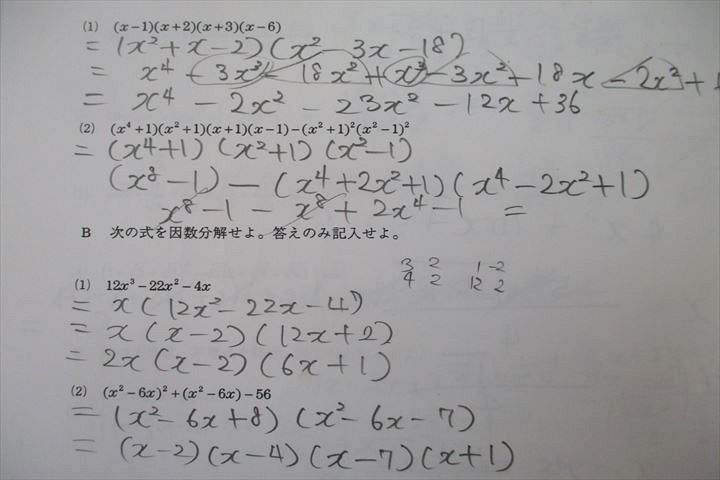 (1) (x-1)(x+2)(x+3)(x-6)
= (x²+x-2)(x²-3x-18)
= x⁴-3x³-18x²+x³-3x²-18x-2x²+
= x⁴-2x²-23x²-12x+36
(2) (x⁴+1)(x²+1)(x+1)(x-1)-(x²+1)²(x²-1)²
= (x⁴+1)(x²+1)(x²-1)
(x⁸-1)-(x⁴+2x²+1)(x⁴-2x²+1)
x⁸-1-x⁸+2x⁴-1 =
B 次の式を因数分解せよ。答えのみ記入せよ。
3 2 1 -2
4 2 12 2
(1) 12x³-22x²-4x
= x(12x²-22x-4)
= x(x-2)(12x+2)
= 2x(x-2)(6x+1)
(2) (x²-6x)²+(x²-6x)-56
= (x²-6x+8)(x²-6x-7)
= (x-2)(x-4)(x-7)(x+1)